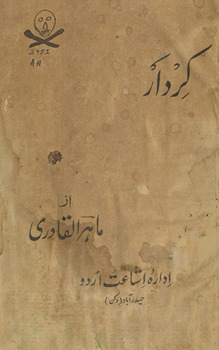 A11
کِردار
از
ماہر القادری
ادارۂ اشاعت اردو
حیدرآباد (دکن)